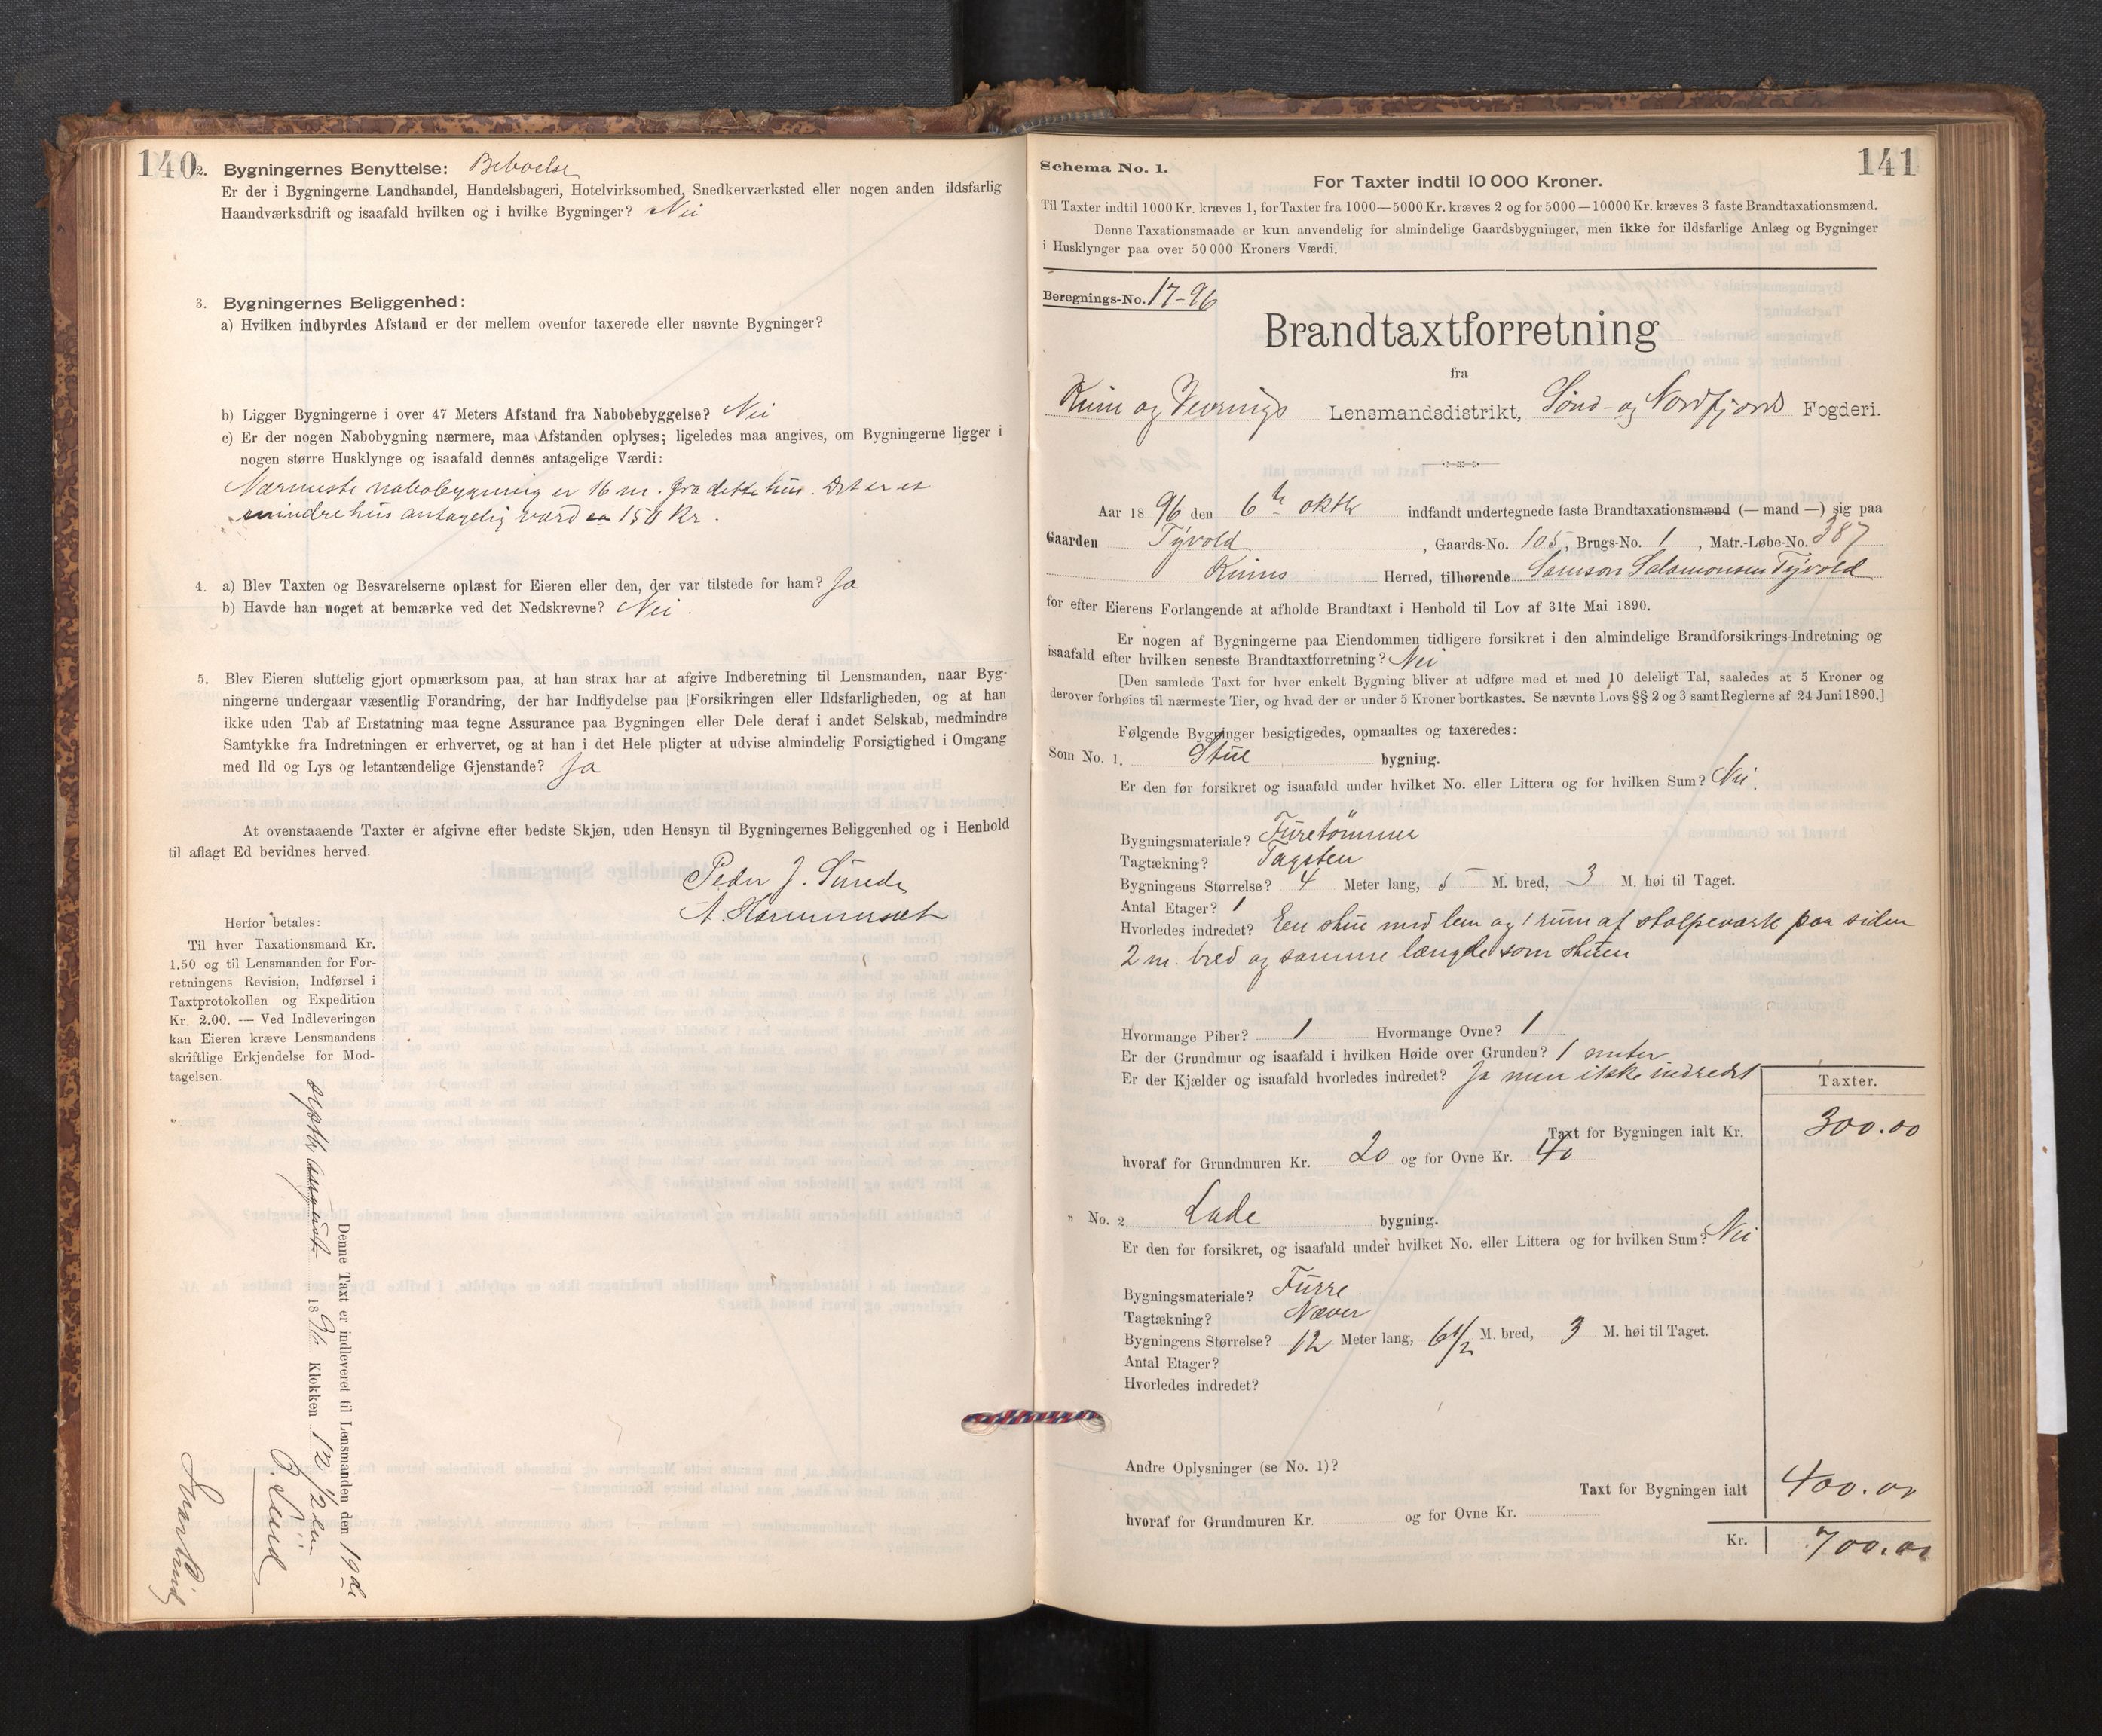 140
2. Bygningernes Benyttelse: Beboelse
Er der i Bygningerne Landhandel, Handelsbageri, Hotelvirksomhed, Snedkerværksted eller nogen anden ildsfarlig
Haandværksdrift og isaafald hvilken og i hvilke Bygninger? Nei
3. Bygningernes Beliggenhed:
a) Hvilken indbyrdes Afstand er der mellem ovenfor taxerede eller nævnte Bygninger?
b) Ligger Bygningerne i over 47 Meters Afstand fra Nabobebyggelse? Nei
c) Er der nogen Nabobygning nærmere, maa Afstanden oplyses; ligeledes maa angives, om Bygningerne ligger i
nogen større Husklynge og isaafald dennes antagelige Værdi:
Nærmeste nabobygning er 16 m. fra dette hus. Det er et
mindre hus antagelig værd ca 150 Kr.
4. a) Blev Taxten og Besvarelserne oplæst for Eieren eller den, der var tilstede for ham? Ja
b) Havde han noget at bemærke ved det Nedskrevne? Nei.
5. Blev Eieren sluttelig gjort opmærksom paa, at han strax har at afgive Indberetning til Lensmanden, naar Byg-
ningerne undergaar væsentlig Forandring, der har Indflydelse paa Forsikringen eller Ildsfarligheden, og at han
ikke uden Tab af Erstatning maa tegne Assurance paa Bygningen eller Dele deraf i andet Selskab, medmindre
Samtykke fra Indretningen er erhvervet, og at han i det Hele pligter at udvise almindelig Forsigtighed i Omgang
med Ild og Lys og letantændelige Gjenstande? Ja
At ovenstaaende Taxter er afgivne efter bedste Skjøn, uden Hensyn til Bygningernes Beliggenhed og i Henhold
til aflagt Ed bevidnes herved.
Peder J.
A. Hammerset
Herfor betales:
Til hver Taxationsmand Kr.
1.50 og til Lensmanden for For-
retningens Revision, Indførsel i
Taxtprotokollen og Expedition
Kr. 2.00. — Ved Indleveringen
kan Eieren kræve Lensmandens
skriftlige Erkjendelse for Mod-
tagelsen.
Denne Taxt er indleveret til Lensmanden den 19de
septbr august 1896 Klokken 12 1/2
141
Schema No. 1.
For Taxter indtil 10 000 Kroner.
Til Taxter indtil 1000 Kr. kræves 1, for Taxter fra 1000—5000 Kr. kræves 2 og for 5000—10000 Kr. kræves 3 faste Brandtaxationsmænd.
Denne Taxationsmaade er kun anvendelig for almindelige Gaardsbygninger, men ikke for ildsfarlige Anlæg og Bygninger
i Husklynger paa over 50 000 Kroners Værdi.
Beregnings-No. 17-96
Brandtaxtforretning
fra
Kinn og Vevrings Lensmandsdistrikt, Sønd- og Nordfjords Fogderi.
Aar 1896 den 6te oktbr indfandt undertegnede faste Brandtaxationsmænd (— mand —) sig paa
Gaarden Tyvold, Gaards-No. 105, Brugs-No. 1, Matr.-Løbe-No. 387
Kinns Herred, tilhørende Samson Salamonsen Tyvold
for efter Eierens Forlangende at afholde Brandtaxt i Henhold til Lov af 31te Mai 1890.
Er nogen af Bygningerne paa Eiendommen tidligere forsikret i den almindelige Brandforsikrings-Indretning og
isaafald efter hvilken seneste Brandtaxtforretning? Nei
[Den samlede Taxt for hver enkelt Bygning bliver at udføre med et med 10 deleligt Tal, saaledes at 5 Kroner og
derover forhøies til nærmeste Tier, og hvad der er under 5 Kroner bortkastes. Se nævnte Lovs §§ 2 og 3 samt Reglerne af 24 Juni 1890.]
Følgende Bygninger besigtigedes, opmaaltes og taxeredes:
Som No. 1. Stue bygning.
Er den før forsikret og isaafald under hvilket No. eller Littera og for hvilken Sum? Nei.
Bygningsmateriale? Furetømmer
Tagtækning? Tagsten
Bygningens Størrelse? 4 Meter lang, 5 M. bred, 3 M. høi til Taget.
Antal Etager? 1
Hvorledes indredet? Een stue med lem og 1 rum af stolpeværk paa siden
2 m. bred og samme længde som stuen
Hvormange Piber? 1 Hvormange Ovne? 1
Er der Grundmur og isaafald i hvilken Høide over Grunden? 1 meter
Er der Kjælder og isaafald hvorledes indredet? Ja men ikke indredet
Taxter.
Taxt for Bygningen ialt Kr. 300.00
hvoraf for Grundmuren Kr. 20 og for Ovne Kr. 40
" No. 2. Lade bygning.
Er den før forsikret, og isaafald under hvilket No. eller Littera og for hvilken Sum? Nei
Bygningsmateriale? Furre
Tagtækning? Næver
Bygningens Størrelse? 12 Meter lang, 6 1/2 M. bred, 3 M. høi til Taget.
Antal Etager?
Hvorledes indredet?
Andre Oplysninger (se No. 1)?
Taxt for Bygningen ialt 400.00
hvoraf for Grundmuren Kr. og for Ovne Kr.
Kr. 700.00